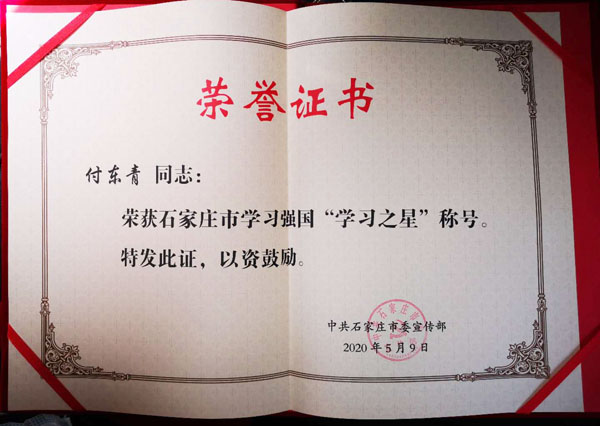 荣誉证书
付东青 同志：
荣获石家庄市学习强国“学习之星”称号。
特发此证，以资鼓励。
中共石家庄市委宣传部
2020年5月9日